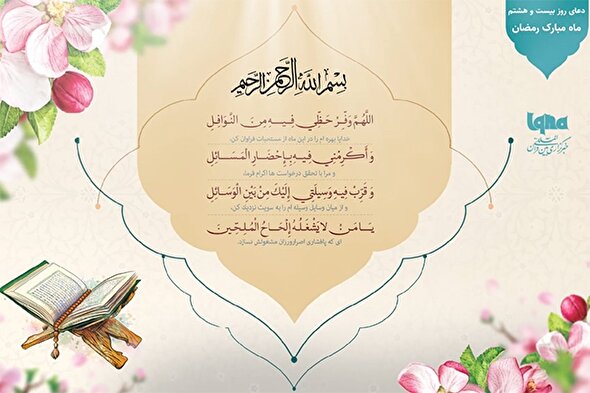 دعای روز بیست و هشتم
ماه مبارک رمضان
iqna
خبرگزاری بین‌المللی قرآن
بِسْمِ اللَّهِ الرَّحْمَنِ الرَّحِيمِ
اللَّهُمَّ وَفِّرْ حَظِّي فِيهِ مِنَ النَّوَافِلِ
خدایا بهره ام را در این ماه از مستحبات فراوان کن،
وَ أَكْرِمْنِي فِيهِ بِإِحْضَارِ الْمَسَائِلِ
و مرا با تحقق درخواست ها اکرام فرما،
وَ قَرِّبْ فِيهِ وَسِيلَتِي إِلَيْكَ مِنْ بَيْنِ الْوَسَائِلِ
و از میان وسایل وسیله ام را به سویت نزدیک کن،
يَا مَنْ لا يَشْغَلُهُ إِلْحَاحُ الْمُلِحِّينَ
ای که پافشاری اصرارورزان مشغولش نسازد.